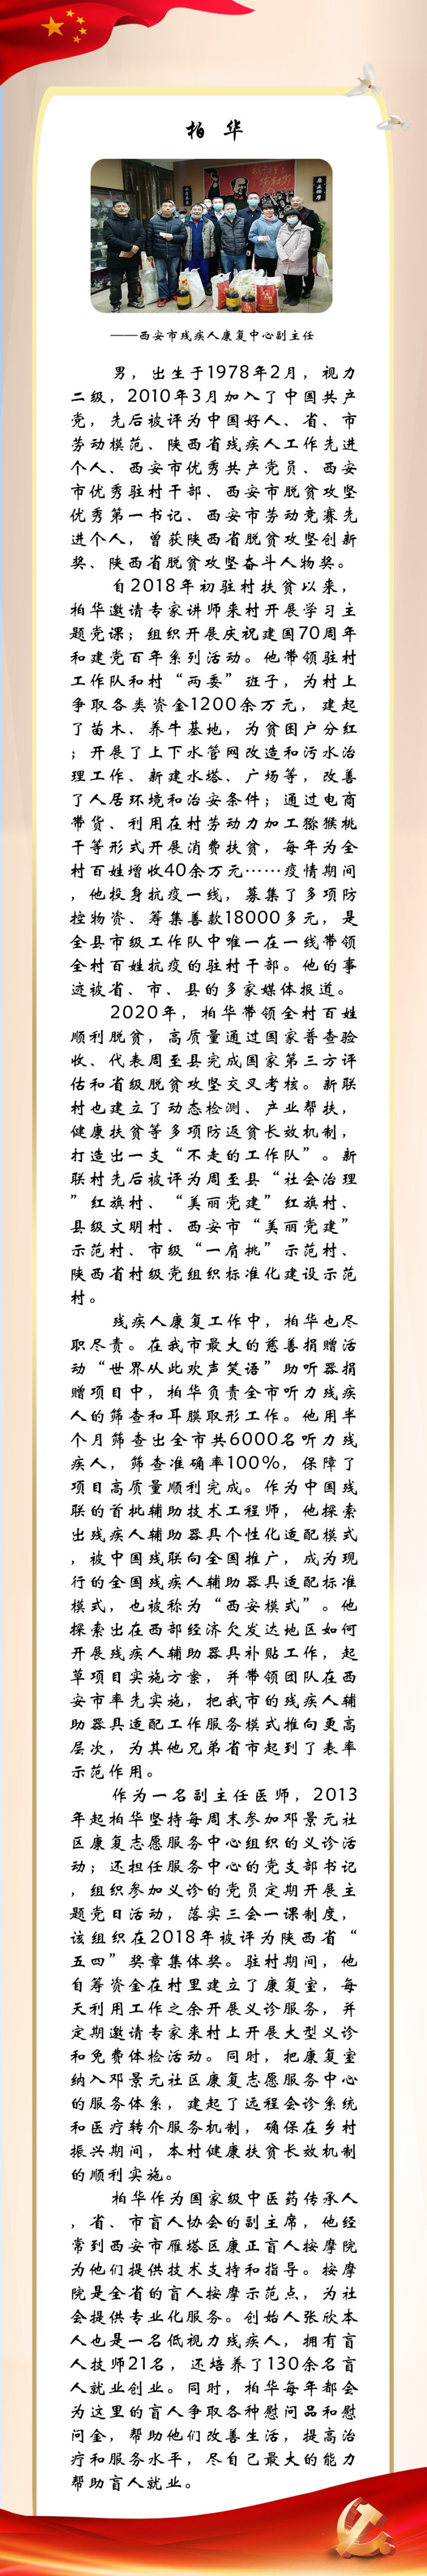 柏 华
——西安市残疾人康复中心副主任
男，出生于1978年2月，视力
二级，2010年3月加入了中国共产
党，先后被评为中国好人、省、市
劳动模范、陕西省残疾人工作先进
个人、西安市优秀共产党员、西安
市优秀驻村干部、西安市脱贫攻坚
优秀第一书记、西安市劳动竞赛先
进个人，曾获陕西省脱贫攻坚创新
奖、陕西省脱贫攻坚奋斗人物奖。
自2018年初驻村扶贫以来，
柏华邀请专家讲师来村开展学习主
题党课；组织开展庆祝建国70周年
和建党百年系列活动。他带领驻村
工作队和村“两委”班子，为村上
争取各类资金1200余万元，建起
了苗木、养牛基地，为贫困户分红
；开展了上下水管网改造和污水治
理工作、新建水塔、广场等，改善
了人居环境和治安条件；通过电商
带货、利用在村劳动力加工猕猴桃
干等形式开展消费扶贫，每年为全
村百姓增收40余万元……疫情期间
，他投身抗疫一线，募集了多项防
控物资、筹集善款18000多元，是
全县市级工作队中唯一在一线带领
全村百姓抗疫的驻村干部。他的事
迹被省、市、县的多家媒体报道。
2020年，柏华带领全村百姓
顺利脱贫，高质量通过国家普查验
收、代表周至县完成国家第三方评
估和省级脱贫攻坚交叉考核。新联
村也建立了动态检测、产业帮扶，
健康扶贫等多项防返贫长效机制，
打造出一支“不走的工作队”。新
联村先后被评为周至县“社会治理
”红旗村、“美丽党建”红旗村、
县级文明村、西安市“美丽党建”
示范村、市级“一肩挑”示范村、
陕西省村级党组织标准化建设示范
村。
残疾人康复工作中，柏华也尽
职尽责。在我市最大的慈善捐赠活
动“世界从此欢声笑语”助听器捐
赠项目中，柏华负责全市听力残疾
人的筛查和耳膜取形工作。他用半
个月筛查出全市共6000名听力残
疾人，筛查准确率100%，保障了
项目高质量顺利完成。作为中国残
联的首批辅助技术工程师，他探索
出残疾人辅助器具个性化适配模式
，被中国残联向全国推广，成为现
行的全国残疾人辅助器具适配标准
模式，也被称为“西安模式”。他
探索出在西部经济欠发达地区如何
开展残疾人辅助器具补贴工作，起
草项目实施方案，并带领团队在西
安市率先实施，把我市的残疾人辅
助器具适配工作服务模式推向更高
层次，为其他兄弟省市起到了表率
示范作用。
作为一名副主任医师，2013
年起柏华坚持每周末参加邓景元社
区康复志愿服务中心组织的义诊活
动；还担任服务中心的党支部书记
，组织参加义诊的党员定期开展主
题党日活动，落实三会一课制度，
该组织在2018年被评为陕西省“
五四”奖章集体奖。驻村期间，他
自筹资金在村里建立了康复室，每
天利用工作之余开展义诊服务，并
定期邀请专家来村上开展大型义诊
和免费体检活动。同时，把康复室
纳入邓景元社区康复志愿服务中心
的服务体系，建起了远程会诊系统
和医疗转介服务机制，确保在乡村
振兴期间，本村健康扶贫长效机制
的顺利实施。
柏华作为国家级中医药传承人
，省、市盲人协会的副主席，他经
常到西安市雁塔区康正盲人按摩院
为他们提供技术支持和指导。按摩
院是全省的盲人按摩示范点，为社
会提供专业化服务。创始人张欣本
人也是一名低视力残疾人，拥有盲
人技师21名，还培养了130余名盲
人就业创业。同时，柏华每年都会
为这里的盲人争取各种慰问品和慰
问金，帮助他们改善生活，提高治
疗和服务水平，尽自己最大的能力
帮助盲人就业。